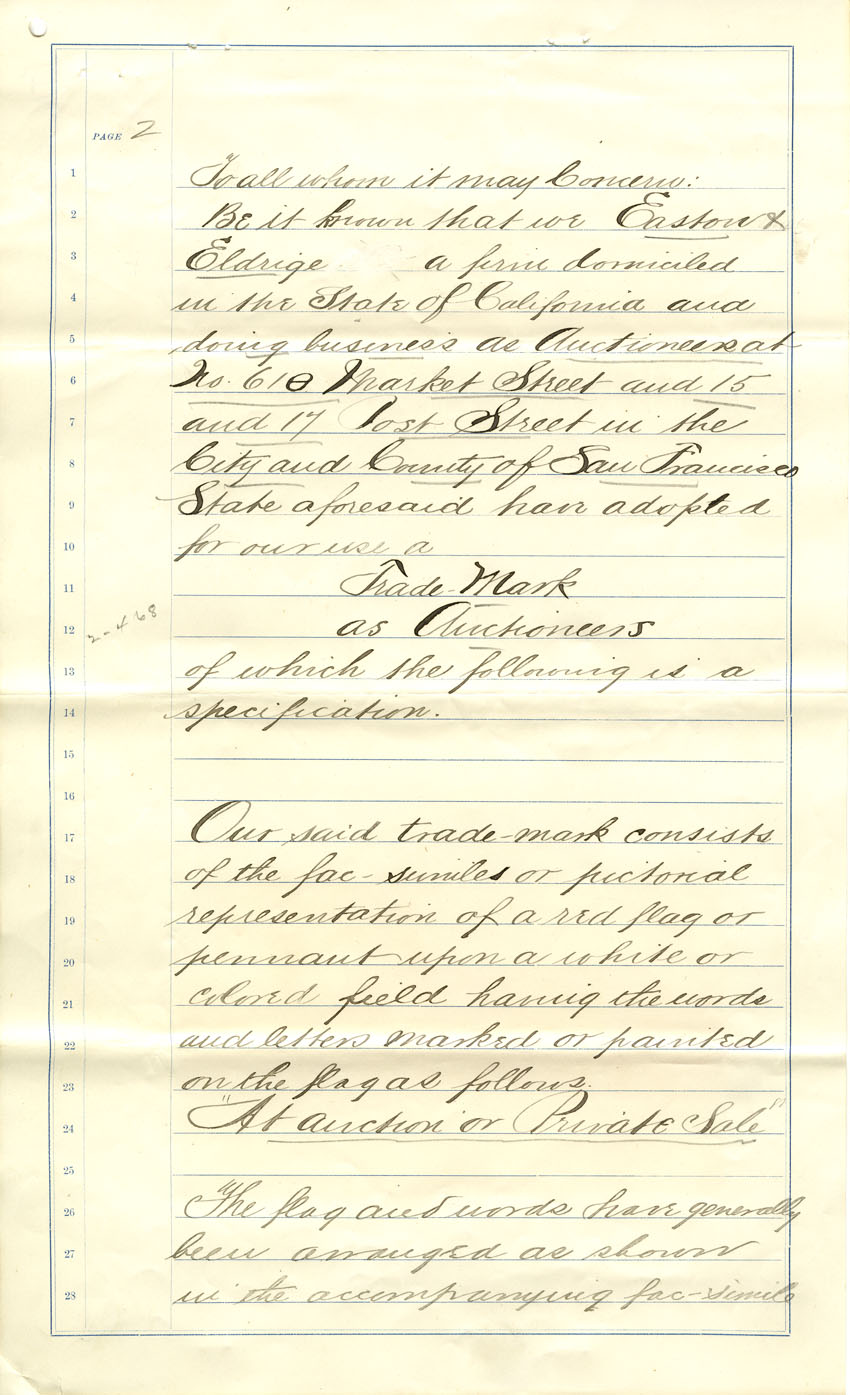 PAGE 2
1 To all whom it may Concern:
2 Be it known that we Easton &
3 Eldrige a firm domiciled
4 in the State of California and
5 doing business as Auctioneers at
6 No. 618 Market Street and 15
7 and 17 Post Street in the
8 City and County of San Francisco
9 State aforesaid have adopted
10 for our use a
11 Trade-Mark
12 as Auctioneers
2-468
13 of which the following is a
14 specification.
15
16
17 Our said trade-mark consists
18 of the fac-similes or pictorial
19 representation of a red flag or
20 pennant upon a white or
21 colored field having the words
22 and letters marked or painted
23 on the flag as follows.
24 "At auction or Private Sale"
25
26 "The flag and words have generally
27 been arranged as shown
28 in the accompanying fac-simile